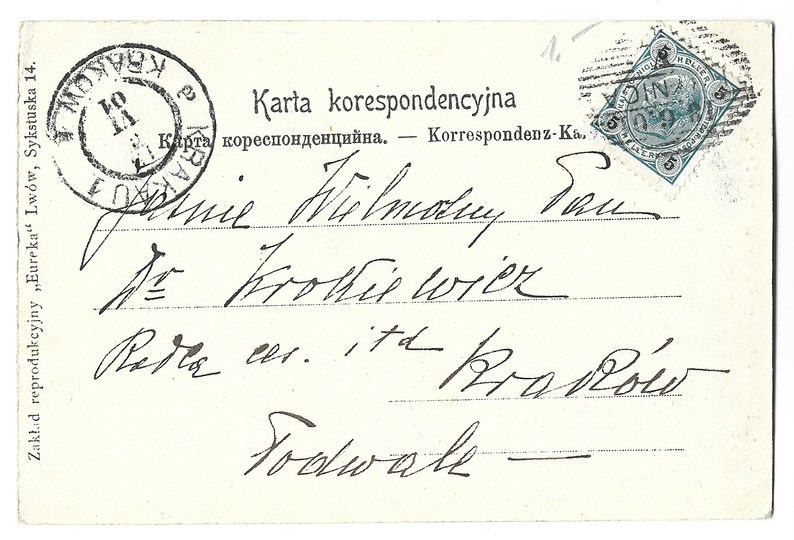 1.
Karta korespondencyjna
Карта кореспонденцийна. — Korrespondenz-Ka.
5 HELLER 5
5 HELLER 5
KRAKÓW 1 KRAKAU 1
VI
01
Jaśnie Wielmożny Pan
Dr Krokiewicz
Radca ces. itd
Kraków
Podwale —
Zakład reprodukcyjny „Eureka“ Lwów, Sykstuska 14.